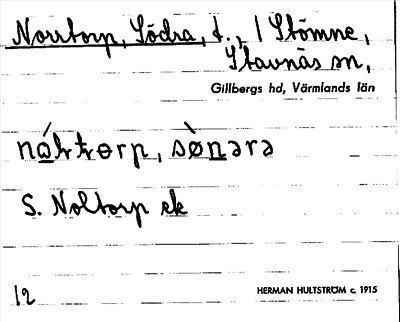 Norrtorp, Södra, t., / Stömne,
Stavnäs sn,
Gillbergs hd, Värmlands län
nót​torp, sønara
S. Noltorp ek
12
HERMAN HULTSTRÖM c. 1915